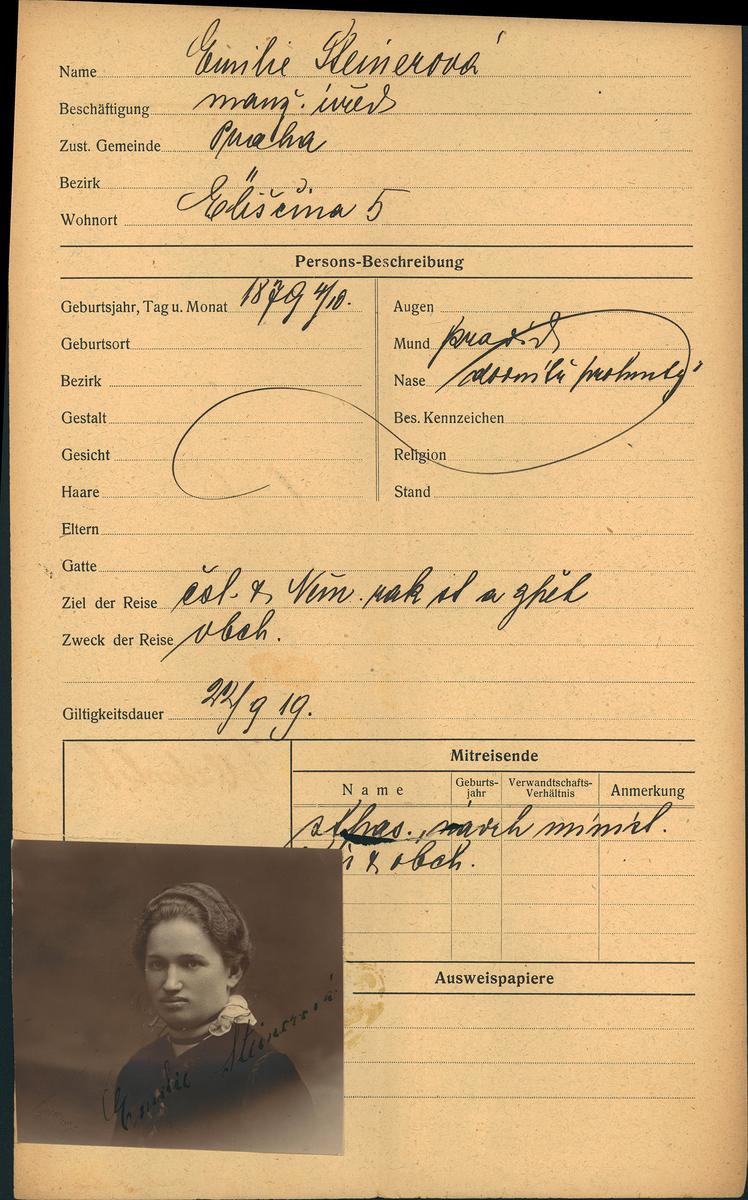 Name Emilie Steinerová
Beschäftigung manž. úřed
Zust. Gemeinde Praha
Bezirk
Wohnort Eliščina 5
Persons-Beschreibung
Geburtsjahr, Tag u. Monat 1879 4/10.
Geburtsort
Bezirk
Gestalt
Gesicht
Haare
Augen
Mund
Nase
Bes. Kennzeichen
Religion
Stand
Eltern
Gatte
Ziel der Reise čsl. & Něm. rak st a zpět
Zweck der Reise obch.
Giltigkeitsdauer 22/9 19.
Mitreisende
Name
Geburts-jahr
Verwandtschafts-Verhältnis
Anmerkung
minist.
& obch.
Ausweispapiere
Emilie Steinerová